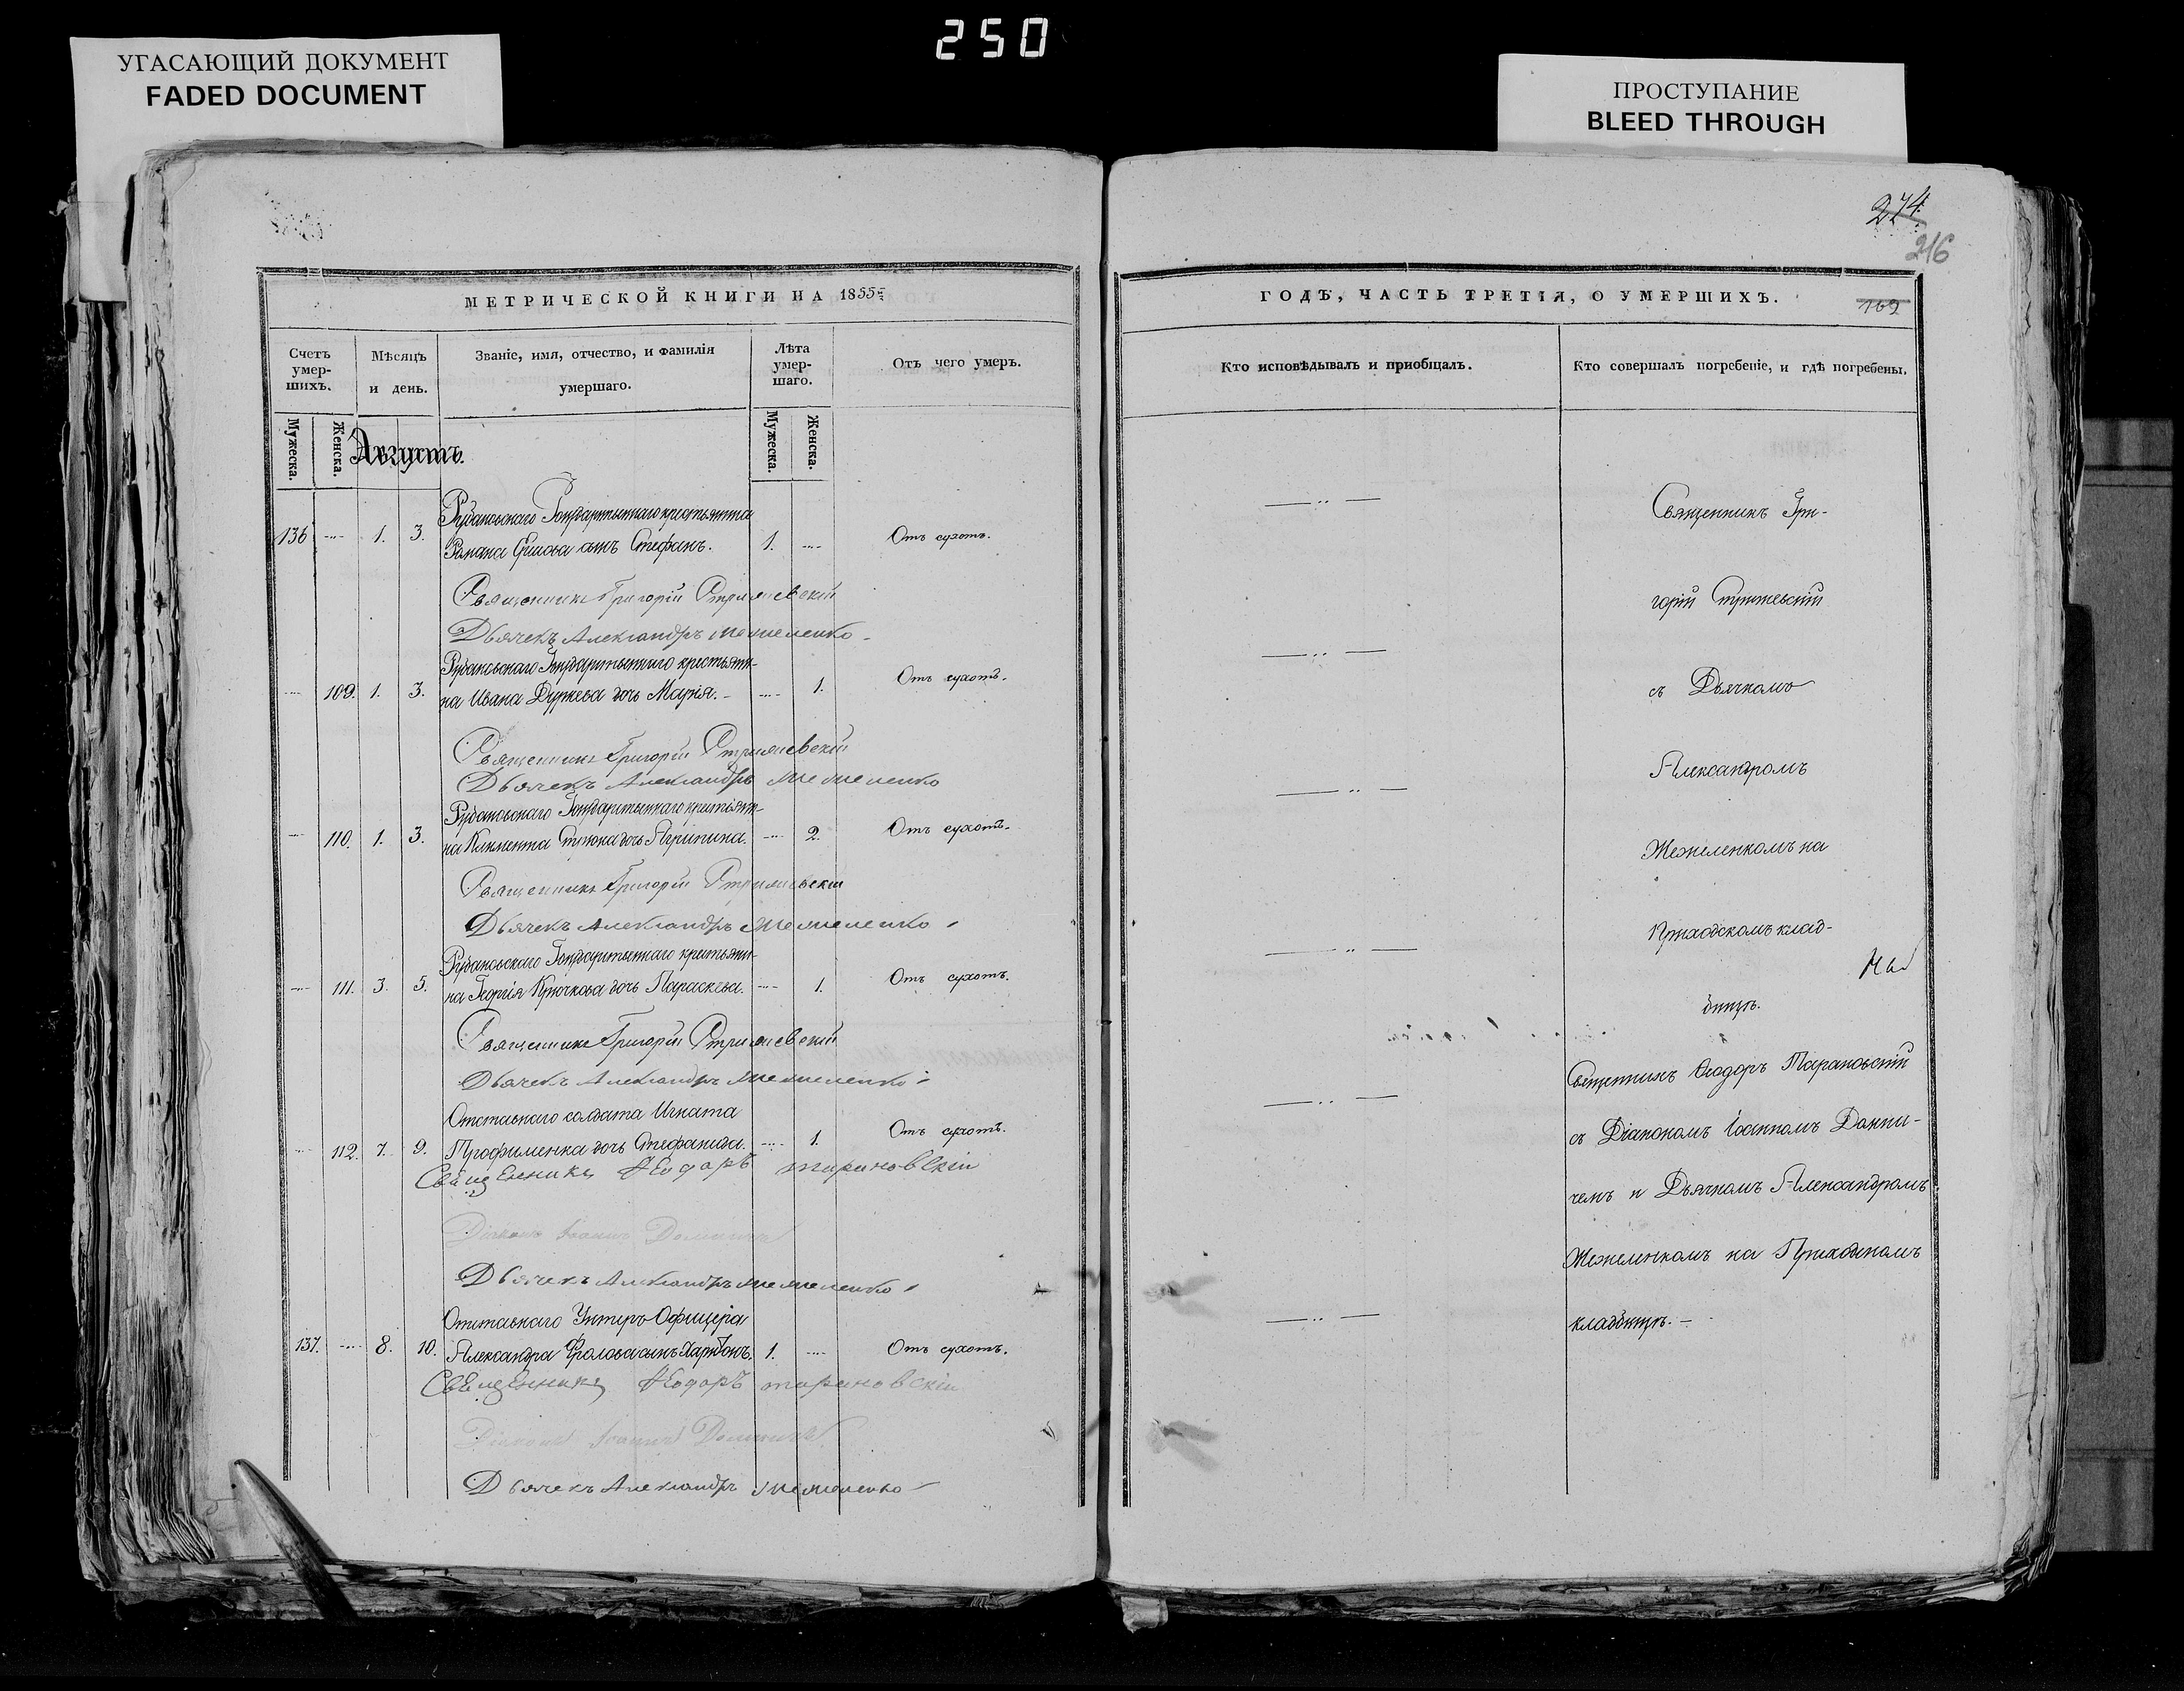 250
УГАСАЮЩИЙ ДОКУМЕНТ
FADED DOCUMENT
ПРОСТУПАНИЕ
BLEED THROUGH
МЕТРИЧЕСКОЙ КНИГИ НА 1855
Счетъ умер-шихъ.
Мѣсяцъ и день.
Званіе, имя, отчество, и фамилія умершаго.
Лѣта умер-шаго.
Отъ чего умеръ.
Мужеска. Женска.
Августъ.
Мужеска. Женска.
Государственнаго крестьянина
136 1. 3. Романа сынъ Стефанъ. 1. Отъ сухотъ.
Священникъ Григорій
Дьячекъ Александръ Межеленко
Государственнаго крестьяни-
109. 1. 3. на Ивана дочь Марія. 1. Отъ сухотъ.
Священникъ Григорій
Дьячекъ Александръ Межеленко
Государственнаго крестьяни-
110. 1. 3. на Климента дочь Агрипина. 2. Отъ сухотъ.
Священникъ Григорій
Дьячекъ Александръ Межеленко
Государственнаго крестьяни-
111. 3. 5. на Георгія Крючкова дочь Параскева. 1. Отъ сухотъ.
Священникъ Григорій
Дьячекъ Александръ Межеленко
Отставнаго солдата Игната
112. 7. 9. Трофименка дочь Стефанида. 1. Отъ сухотъ.
Священникъ Ѳеодоръ Тарановскій
Діаконъ Іоаннъ
Дьячекъ Александръ Межеленко
Отставнаго Унтеръ-Офицера
137. 8. 10. Александра Фролова сынъ Харитонъ. 1. Отъ сухотъ.
Священникъ Ѳеодоръ Тарановскій
Діаконъ Іоаннъ
Дьячекъ Александръ Межеленко
274.
216
169
ГОДЪ, ЧАСТЬ ТРЕТІЯ, О УМЕРШИХЪ.
Кто исповѣдывалъ и приобщалъ.
Кто совершалъ погребеніе, и гдѣ погребены.
Священникъ Гри-
горій
съ Дьячкомъ
Александромъ
Межеленкомъ на
Приходскомъ клад-
бищѣ.
Священникъ Ѳеодоръ Тарановскій
съ Діакономъ Іоанномъ
чемъ и Дьячкомъ Александромъ
Межеленкомъ на Приходскомъ
кладбищѣ.